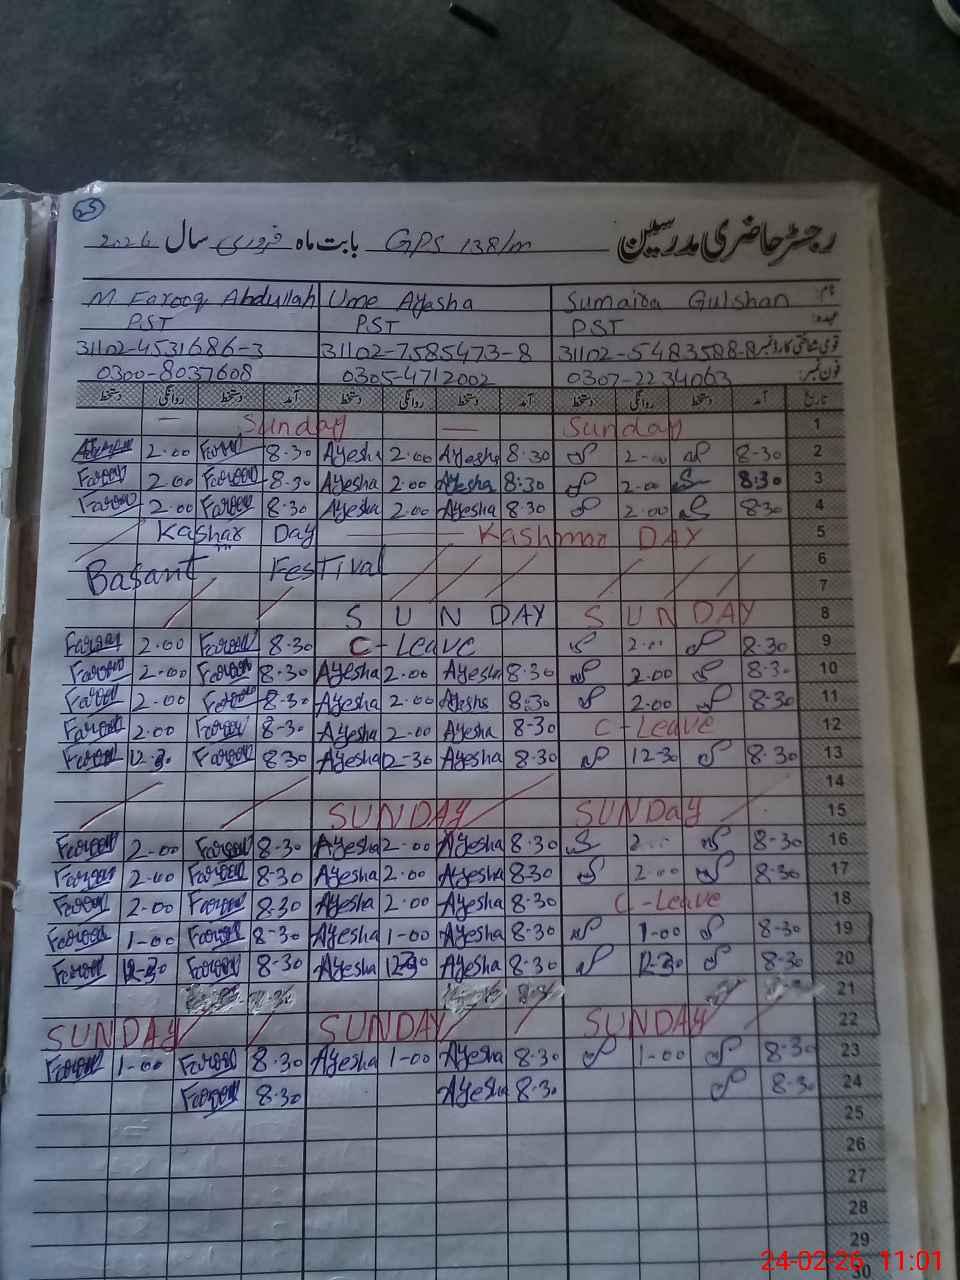 25
رجسٹر حاضری مدرسین GPS 138/m بابت ماہ فروری سال 2026
نام: Sumaira Gulshan Ume Ayesha M Farooq Abdullah
عہدہ: PST PST PST
قومی شناختی کارڈ نمبر 31102-5483588-8 31102-7585473-8 31102-4531686-3
فون نمبر: 0307-2234063 0305-4712002 0300-8037608
تاریخ آمد دستخط روانگی دستخط آمد دستخط روانگی دستخط آمد دستخط روانگی دستخط
— Sunday — Sunday 1
2.00 Farooq 8.30 Ayesha 2.00 Ayesha 8.30 2-00 8-30 2
Farooq 2.00 Farooq 8.30 Ayesha 2.00 Ayesha 8:30 2.00 8:30 3
Farooq 2.00 Farooq 8.30 Ayesha 2.00 Ayesha 8.30 2.00 8.30 4
Kashar Day Kashmar DAY 5
6
Basant Festival 7
SUNDAY SUNDAY 8
Farooq 2.00 Farooq 8.30 C-Leave 2.00 8.30 9
Farooq 2.00 Farooq 8.30 Ayesha 2.00 Ayesha 8.30 2.00 8.30 10
Farooq 2.00 Farooq 8.30 Ayesha 2.00 Ayesha 8.30 2.00 8.30 11
Farooq 2.00 Farooq 8-30 Ayesha 2-00 Ayesha 8-30 C-Leave 12
Farooq 12-30 Farooq 8.30 Ayesha 12-30 Ayesha 8.30 12-30 8.30 13
14
SUNDAY SUNDay 15
Farooq 2-00 Farooq 8-30 Ayesha 2-00 Ayesha 8.30 8-30 16
Farooq 2-00 Farooq 8-30 Ayesha 2.00 Ayesha 8.30 2.00 8.30 17
Farooq 2.00 Farooq 8.30 Ayesha 2.00 Ayesha 8.30 C-Leave 18
Farooq 1-00 Farooq 8-30 Ayesha 1-00 Ayesha 8.30 1-00 8-30 19
Farooq 12-30 Farooq 8-30 Ayesha 12-30 Ayesha 8.30 12-30 8.30 20
21
SUNDAY SUNDAY SUNDAY 22
Farooq 1-00 Farooq 8.30 Ayesha 1-00 Ayesha 8.30 1-00 8-30 23
Farooq 8.30 Ayesha 8.30 8.30 24
25
26
27
28
29
30
24-02-26 11:01